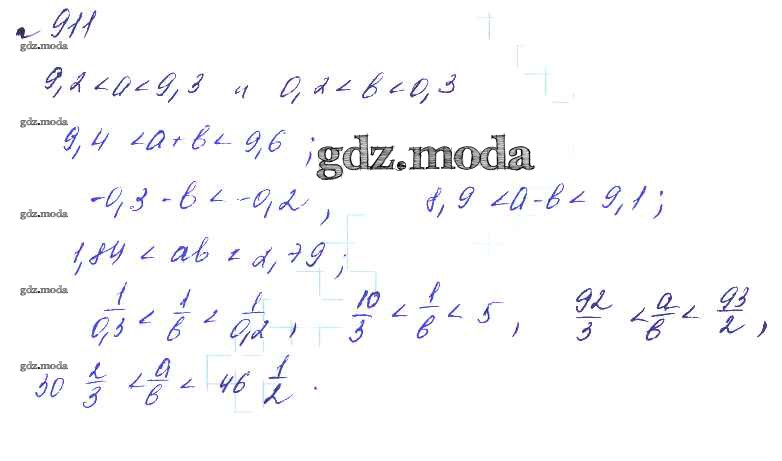 № 911
gdz.moda
9,2 < a < 9,3 и 0,2 < b < 0,3
gdz.moda
9,4 < a + b < 9,6 ;
gdz.moda
-0,3 - b < -0,2 , 8,9 < a - b < 9,1 ;
gdz.moda
1,84 < ab < 2,79 ;
gdz.moda
1/0,3 < 1/b < 1/0,2 , 10/3 < 1/b < 5 , 92/3 < a/b < 93/2 ,
gdz.moda
30 2/3 < a/b < 46 1/2 .